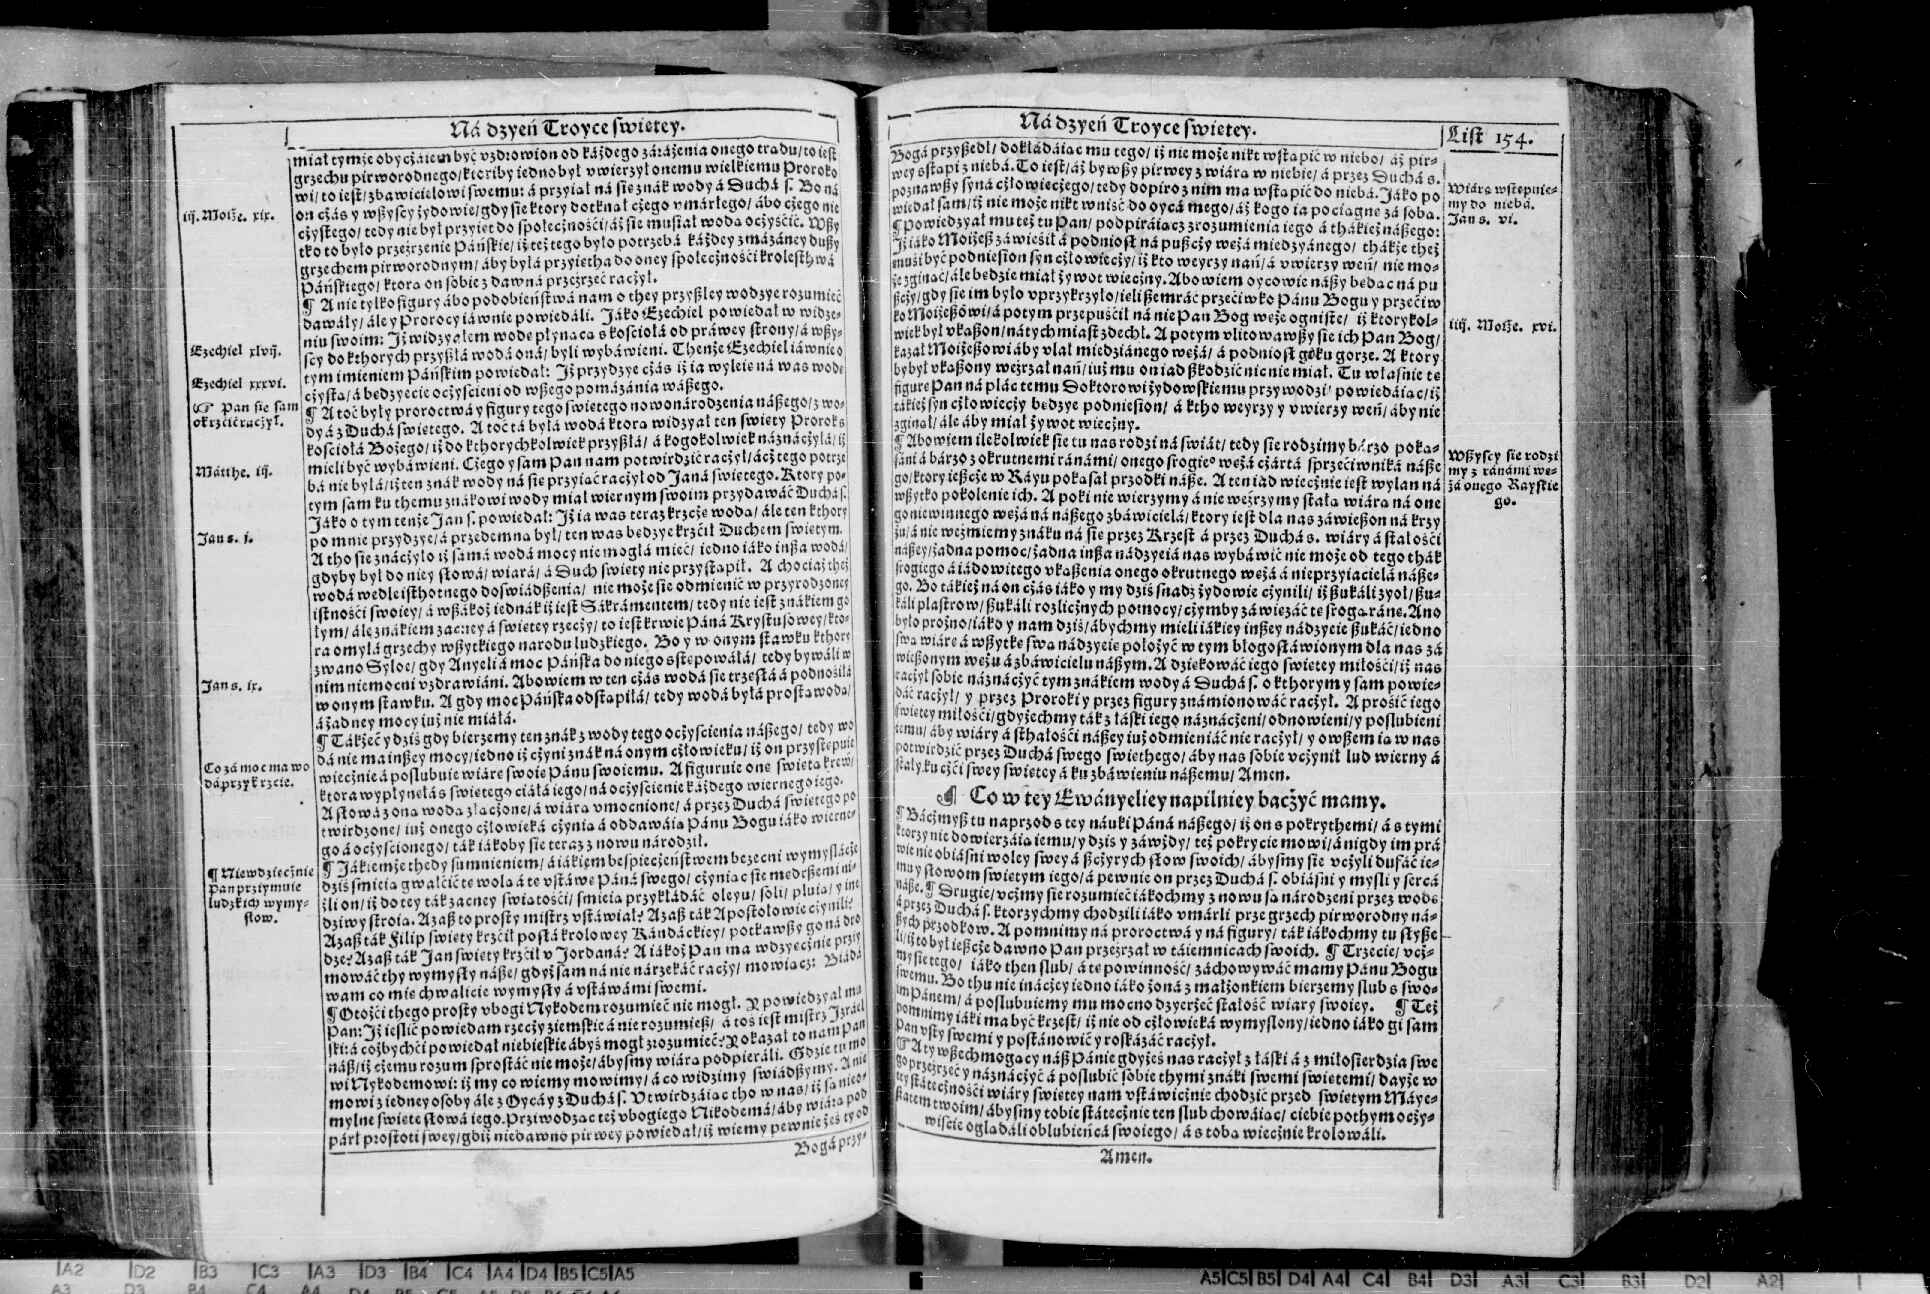 Ná dzyeń Troyce swietey.
miał tymże obycżaiem być vzdrowion od káżdego záráżenia onego trądu/ to iest
grzechu pirworodnego/ ktoriby iedno był vwierzył onemu wielkiemu Proroko
wi/ to iest/ zbáwicielowi swemu: á przyiął ná sie znák wody á Duchá s. Bo ná
on cżás y wßyscy żydowie/ gdy sie ktory dotknął cżego vmárłego/ ábo cżego nie
cżystego/ tedy nie był przyięt do społecżnośći/ áż sie musiał wodą ocżyśćić. Wßy
tko to było przeźrzenie Páńskie/ iż też tego było potrzebá káżdey zmázáney dußy
grzechem pirworodnym/ áby byłá przyiethá do oney społecżnośći krolesthwá
Páńskiego/ ktorą on sobie z dawná przeźrzeć racżył.
¶ A nie tylko figury ábo podobieństwá nam o they przyßłey wodzye rozumieć
dawáły/ ále y Prorocy iáwnie powiedáli. Jáko Ezechiel powiedał w widze-
niu swoim: Jż widzyałem wodę płynącą s kościołá od práwey strony/ á wßy-
scy do kthorych przyßłá wodá oná/ byli wybáwieni. Thenże Ezechiel iáwnie o
tym imieniem Páńskim powiedał: Jż przydzye cżás iż ia wyleię ná was wodę
cżystą/ á będzyecie ocżyścieni od wßego pomázánia wáßego.
¶ A toć były proroctwá y figury tego świętego nowonárodzenia náßego/ z wo-
dy á z Duchá świętego. A toć tá byłá wodá ktorą widzyał ten święty Prorok s
kościołá Bożego/ iż do kthorychkolwiek przyßłá/ á kogokolwiek náznácżyłá/ iż
mieli być wybáwieni. Cżego y sam Pan nam potwirdzić racżył/ acż tego potrze
bá nie byłá/ iż ten znák wody ná się przyiąć racżył od Janá świętego. Ktory po-
tym sam ku themu znákowi wody miał wiernym swoim przydawáć Duchá s.
Jáko o tym tenże Jan s. powiedał: Jż ia was teraz krzcżę wodą/ ále ten kthory
po mnie przydzye/ á przedemną był/ ten was będzye krzćił Duchem świętym.
A tho się znácżyło iż sámá wodá mocy nie mogłá mieć/ iedno iáko inßa wodá/
gdyby był do niey słowá/ wiárá/ á Duch święty nie przystąpił. A chociaż theż
wodá wedle isthotnego doswiádßenia/ nie może się odmienić w przyrodzoney
istnośći swoiey/ á wßákoż iednák iż iest Sákrámentem/ tedy nie iest znákiem go
łym/ ále znákiem zacney á świętey rzecży/ to iest krwie Páná Krystusowey/ kto-
ra omyłá grzechy wßytkiego narodu ludzkiego. Bo y w onym stáwku kthory
zwano Syloe/ gdy Anyeli á moc Páńska do niego sstępowáłá/ tedy bywáli w
nim niemocni vzdrawiáni. Abowiem w ten cżás wodá się trzęsłá á podnosiłá
w onym stáwku. A gdy moc Páńska odstąpiłá/ tedy wodá byłá prosta wodá/
á żadney mocy iuż nie miáłá.
¶ Tákżeć y dziś gdy bierzemy ten znák z wody tego ocżyścienia náßego/ tedy wo
dá nie ma inßey mocy/ iedno iż cżyni znák ná onym cżłowieku/ iż on przystępuie
wiecżnie á poslubuie wiárę swoię Pánu swoiemu. A figuruie onę świętą krew/
ktora wypłynęłá s świętego ciáłá iego/ ná ocżyścienie káżdego wiernego iego.
A słowá z oną wodą złącżone/ á wiárą vmocnione/ á przez Duchá świętego po
twirdzone/ iuż onego cżłowieká cżynią á oddawáią Pánu Bogu iáko wierne-
go á ocżyścionego/ ták iákoby się teraz z nowu národził.
¶ Jákiemże thedy sumnieniem/ á iákiem bespiecżeństwem bezecni wymyslácże
dziś śmieią gwałćić tę wolą á tę vstáwę Páná swego/ cżyniąc się mędrßemi ni-
żli on/ iż do tey ták zacney świátośći/ śmieią przykłádáć oleyu/ soli/ plują/ y ine
dziwy stroią. Azaß to prosty mistrz vstáwiał? Azaß ták Apostołowie cżynili?
Azaß ták Filip święty krzćił posłá krolowey Kándáckiey/ potkawßy go ná dro
dze? Azaß ták Jan święty krzćił v Jordaná? A iákoż Pan ma wdzyęcżnie przyi
mowáć thy wymysły náße/ gdyż sam ná nie nárzekáć racży/ mowiąc: Biádá
wam co mię chwalicie wymysły á vstáwámi swemi.
¶ Otożći thego prosty vbogi Nykodem rozumieć nie mogł. Y powiedzyał mu
Pan: Jż iesliż powiedam rzecży ziemskie á nie rozumieß/ á toś iest mistrz Jzráel
ski: á cożbychći powiedał niebieskie ábyś mogł zrozumieć? Pokazał to nam Pan
náß/ iż cżemu rozum sprostáć nie może/ ábysmy wiárą podpieráli. Gdzie tu mo
wi Nykodemowi: iż my co wiemy mowimy/ á co widzimy swiádßymy. A nie
mowi z iedney osoby ále z Oycá y z Duchá s. Vtwirdzáiąc tho w nas/ iż są nieo-
mylne święte słowá iego. Przywodząc też vbogiego Nikodemá/ áby wiárą pod
párł prostoti swey/ gdiż niedawno pirwey powiedał/ iż wiemy pewnie żeś ty od
Bogá przy-
iij. Moiże. xix.
Ezechiel xlvij.
Ezechiel xxxvi.
☞ Pan sie sam
okrzćić racżył.
Mátthe. iij.
Jan s. j.
Jan s. ix.
Co zá moc ma wo
dá przy krzcie.
¶ Niewdzięcżnie
Pan przyimuie
ludzkich wymy-
słow.
Ná dzyeń Troyce swietey.
List 154.
Bogá przyßedł/ dokłádáiąc mu tego/ iż nie może nikt wstąpić w niebo/ áż pir-
wey sstąpi z niebá. To iest/ áż by wßy pirwey z wiárą w niebie/ á przez Duchá s.
poznawßy syná cżłowiecżego/ tedy dopiro z nim ma wstąpić do niebá. Jáko po
wiedał sam/ iż nie może nikt wniść do oycá mego/ áż kogo ia pociągnę zá sobą.
¶ Powiedzyał mu też tu Pan/ podpiráiącz zrozumienia iego á thákież náßego:
Jż iáko Moiżeß záwieśił á podniosł ná pußcży wężá miedzyánego/ thákże theż
musi być podniesion syn cżłowiecży/ iż kto weyrzy nań/ á vwierzy weń/ nie mo-
że zginąć/ ále będzie miał żywot wiecżny. Abowiem oycowie náßy będąc ná pu
ßcży/ gdy się im było vprzykrzyło/ ięli ßemráć przećiwko Pánu Bogu y przećiw
ko Moiżeßowi/ á potym przepuśćił ná nie Pan Bog węże ogniste/ iż ktorykol-
wiek był vkąßon/ nátychmiast zdechł. A potym vlitowawßy się ich Pan Bog/
kazał Moiżeßowi áby vlał miedziánego wężá/ á podniosł gi ku gorze. A ktory
by był vkąßony weźrzał nań/ iuż mu on iad ßkodźić nic nie miał. Tu własnie tę
figurę Pan ná plác temu Doktorowi żydowskiemu przywodzi/ powiedáiąc/ iż
tákież syn cżłowiecży będzye podniesion/ á ktho weyrzy y vwierzy weń/ áby nie
zginął/ ále áby miał żywot wiecżny.
¶ Abowiem ilekolwiek się tu nas rodzi ná świát/ tedy się rodzimy bárzo poką-
sáni á bárzo z okrutnemi ránámi/ onego srogiego wężá cżártá sprzećiwniká náße
go/ ktory ießcże w Ráyu pokąsał przodki náße. A ten iad wiecżnie iest wylan ná
wßytko pokolenie ich. A poki nie wierzymy á nie weźrzymy stałą wiárą ná one
go niewinnego wężá ná náßego zbáwicielá/ ktory iest dla nas záwießon ná krzy
żu/ á nie weźmiemy znáku ná się przez Krzest á przez Duchá s. wiáry á stałośći
náßey/ żadna pomoc/ żadna inßa nádzyeiá nas wybáwić nie może od tego thák
srogiego á iádowitego vkąßenia onego okrutnego wężá á nieprzyiacielá náße-
go. Bo tákież ná on cżás iáko y my dziś snadź żydowie cżynili/ iż ßukáli zyoł/ ßu-
káli plastrow/ ßukáli rozlicżnych pomocy/ cżymby záwięzáć tę srogą ránę. Ano
było prozno/ iáko y nam dziś/ ábychmy mieli iákiey inßey nádzyeie ßukáć/ iedno
swą wiárę á wßytkę swą nádzyeię położyć w tym błogosłáwionym dla nas zá
wießonym wężu á zbáwicielu náßym. A dziękowáć iego świętey miłośći/ iż nas
racżył sobie náznácżyć tym znákiem wody á Duchá s. o kthorymy sam powie-
dáć racżył/ y przez Proroki y przez figury známionowáć racżył. A prośić iego
świętey miłośći/ gdyżechmy ták z łáski iego náznácżeni/ odnowieni/ y poslubieni
temu/ áby wiáry á sthałośći náßey iuż odmieniáć nie racżył/ y owßem ią w nas
potwirdzić przez Duchá swego świethego/ áby nas sobie vcżynił lud wierny á
stały/ ku cżći swey świętey á ku zbáwieniu náßemu/ Amen.
¶ Co w tey Ewányeliey napilniey bacżyć mamy.
¶ Bácżmyß tu naprzod s tey náuki Páná náßego/ iż on s pokrythemi/ á s tymi
ktorzy nie dowierzáią iemu/ y dziś y záwżdy/ też pokrycie mowi/ á nigdy im prá
wie nie obiáśni woley swey á ßcżyrych słow swoich/ ábysmy się vcżyli dufáć ie-
mu y słowom świętym iego/ á pewnie on przez Duchá s. obiáśni y mysli y sercá
náße. ¶ Drugie/ vcżmy się rozumieć iákochmy z nowu są národzeni przez wodę
á przez Duchá s. ktorzychmy chodzili iáko vmárli prze grzech pirworodny ná-
ßych przodkow. A pomnimy ná proroctwá y ná figury/ ták iákochmy tu słyße
li/ iż to był ießcże dawno Pan przeźrzał w táiemnicach swoich. ¶ Trzecie/ vcż-
my się tego/ iáko then slub/ á tę powinność/ záchowywáć mamy Pánu Bogu
swemu. Bo thu nie inácżey iedno iáko żoná z małżonkiem bierzemy slub s swo-
im Pánem/ á poslubuiemy mu mocno dzyerżeć stałość wiáry swoiey. ¶ Też
pomnimy iáki ma być krzest/ iż nie od cżłowieká wymyslony/ iedno iáko gi sam
Pan vsty swemi y postánowić y roskázáć racżył.
¶ A ty wßechmogący náß Pánie gdyżeś nas racżył z łáski á z miłosierdzia swe
go przeźrzeć y náznácżyć á poslubić sobie thymi znáki swemi świętemi/ dayże w
tey státecżnośći wiáry świętey nam vstáwicżnie chodźić przed świętym Máye-
statem twoim/ ábysmy tobie státecżnie ten slub chowáiąc/ ciebie pothym ocży-
wiście oglądáli oblubieńcá swoiego/ á s tobą wiecżnie krolowáli.
Amen.
Wiárą wstępuie-
my do niebá.
Jan s. vi.
iiij. Moiże. xvi.
Wßyscy się rodzi
my z ránámi wę-
żá onego Rayskie
go.